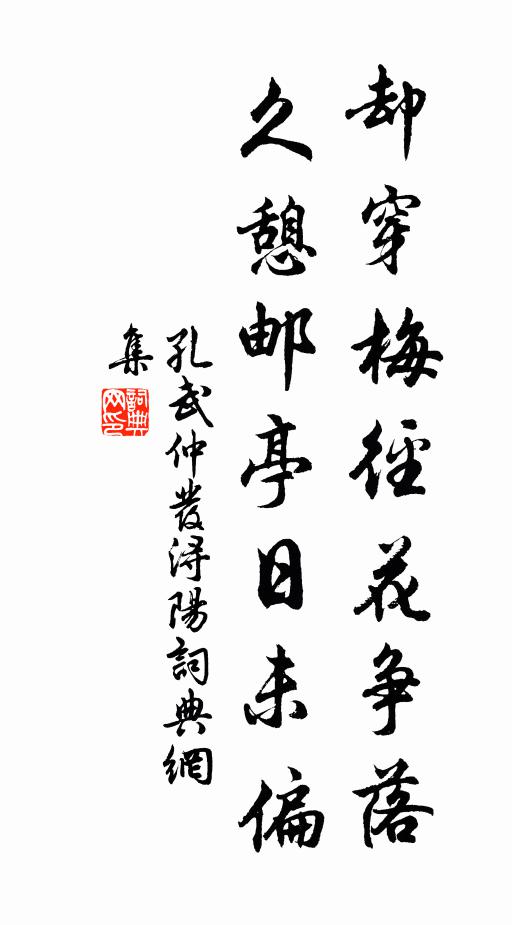 却穿梅徑花争落
久憩邮亭日未偏
孔武仲發潯陽詞典網
集
詞典
网印